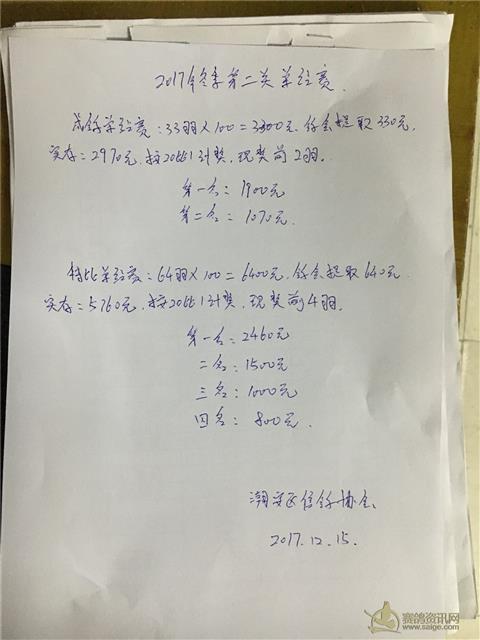 2017年冬季第二关单给赛
成鸽单给赛:33羽×100=3300元,鸽会提取330元,
实存:2970元,按20比1计奖,现奖前2羽。
第一名:1900元
第二名:1070元
特比单给赛:64羽×100=6400元,鸽会提取640元
实存:5760元,按20比1计奖,现奖前4羽。
第一名:2460元
二名:1500元
三名:1000元
四名:800元
潮安区信鸽协会
2017.12.15.
赛鸽资讯网
www.saige.com